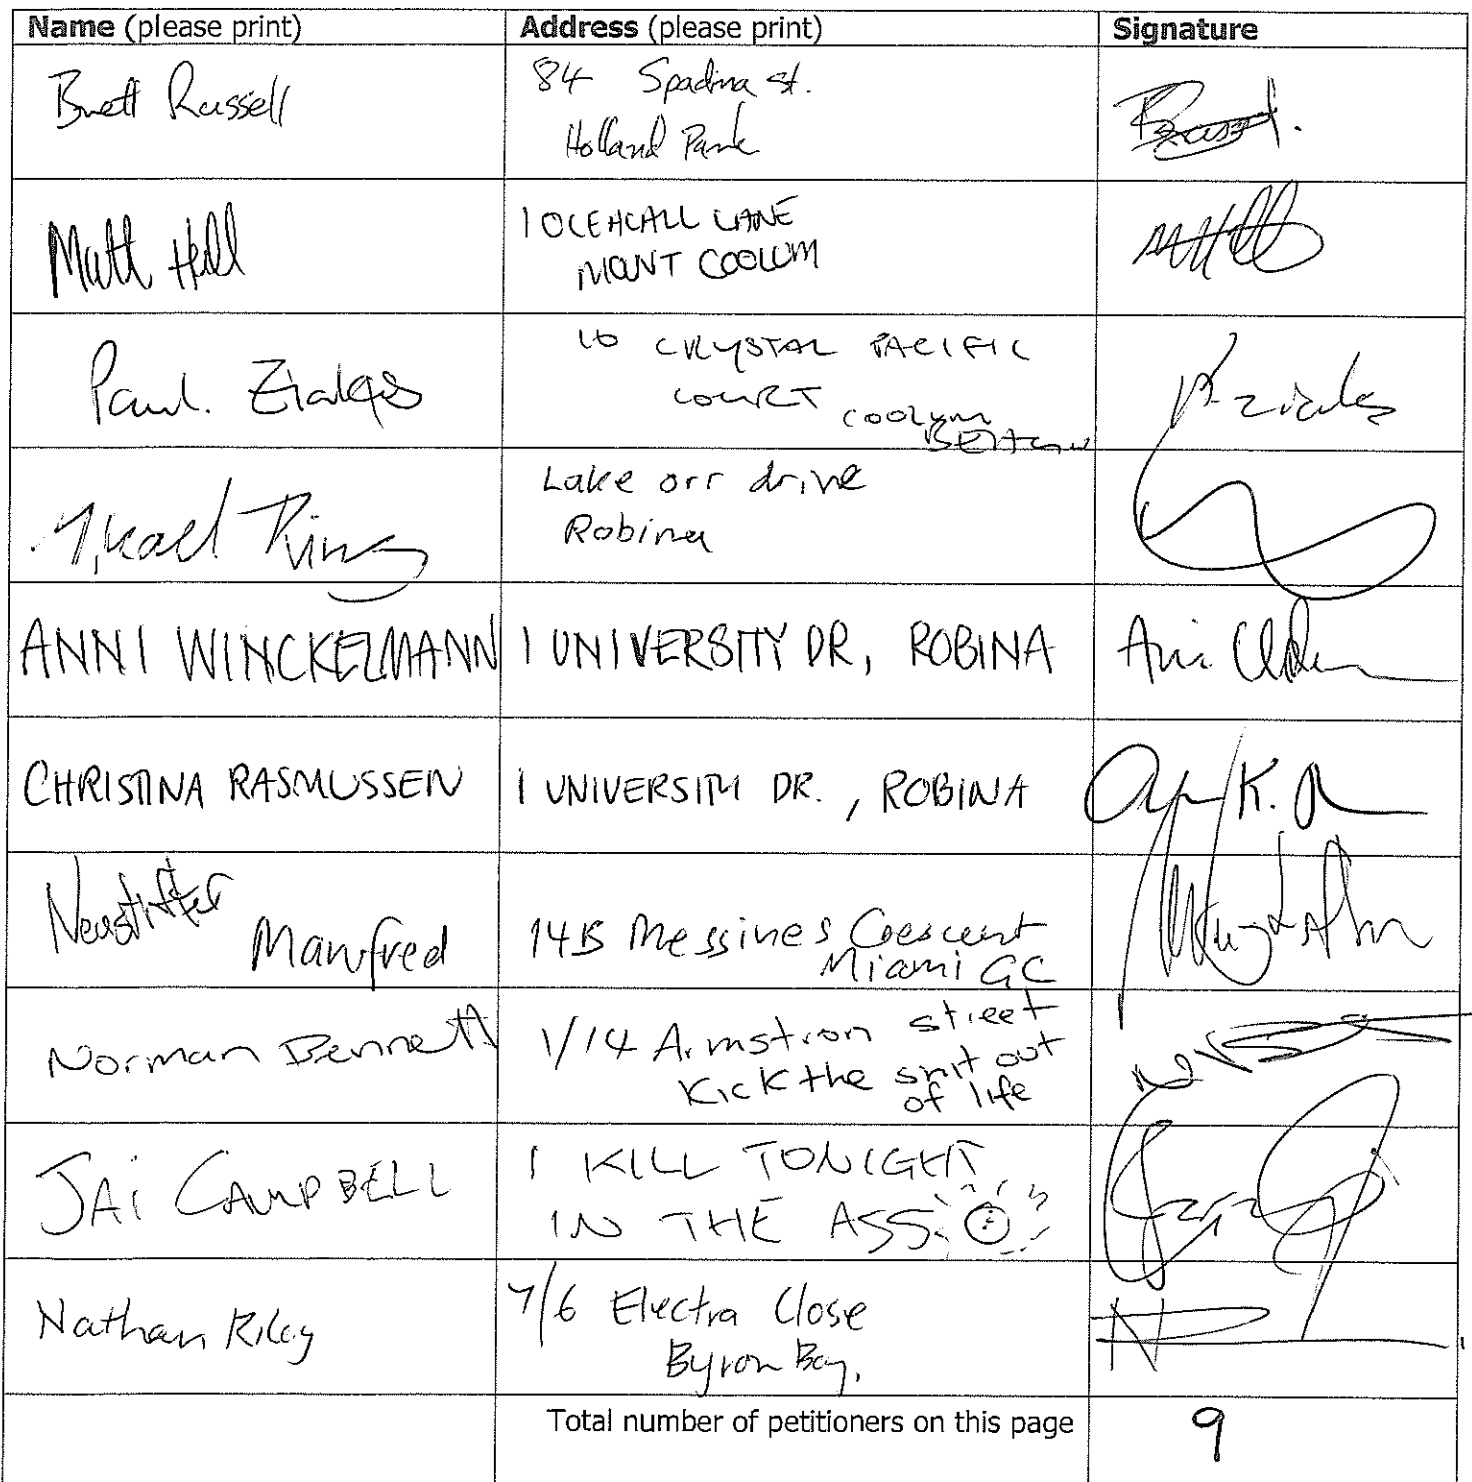 Name (please print) Address (please print) Signature
Brett Russell 84 Spadina St.
Holland Park
Matt Hill 1 OCEHCALL LANE
MOUNT COOLUM
Paul. Zialas 10 CRYSTAL PACIFIC
COURT COOLUM
BEACH
King Lake orr drive
Robina
ANNI WINCKELMANN 1 UNIVERSITY DR, ROBINA
CHRISTINA RASMUSSEN 1 UNIVERSITY DR., ROBINA K.
Neustifter
Manfred 14B Messines Crescent
Miami GC
Norman Bennett 1/14 Armstron street
Kick the snit out
of life
JAI CAMPBELL 1 KILL TONIGHT
IN THE ASS
Nathan Riley 7/6 Electra Close
Byron Bay.
Total number of petitioners on this page 9